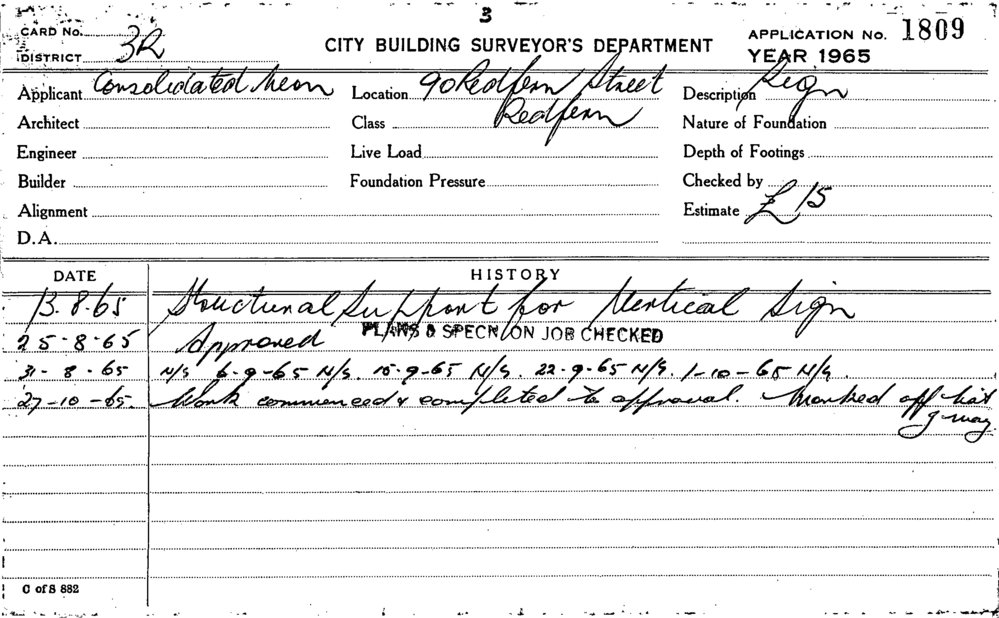 3
CARD No.
DISTRICT 3R
CITY BUILDING SURVEYOR'S DEPARTMENT
APPLICATION No. 1809
YEAR 1965
Applicant Consolidated Neon Location 90 Redfern Street Description Sign
Architect Class Redfern Nature of Foundation
Engineer Live Load Depth of Footings
Builder Foundation Pressure Checked by
Alignment Estimate £ 15
D.A.
DATE HISTORY
13.8.65 Structural Support for Vertical Sign
25-8-65 Approved PLANS & SPECN ON JOB CHECKED
31-8-65 N/S 6-9-65 N/S. 15-9-65 N/S. 22-9-65 N/S. 1-10-65 N/S.
27-10-65. Work commenced & completed to approval. Marked off list
J. May
C of S 882